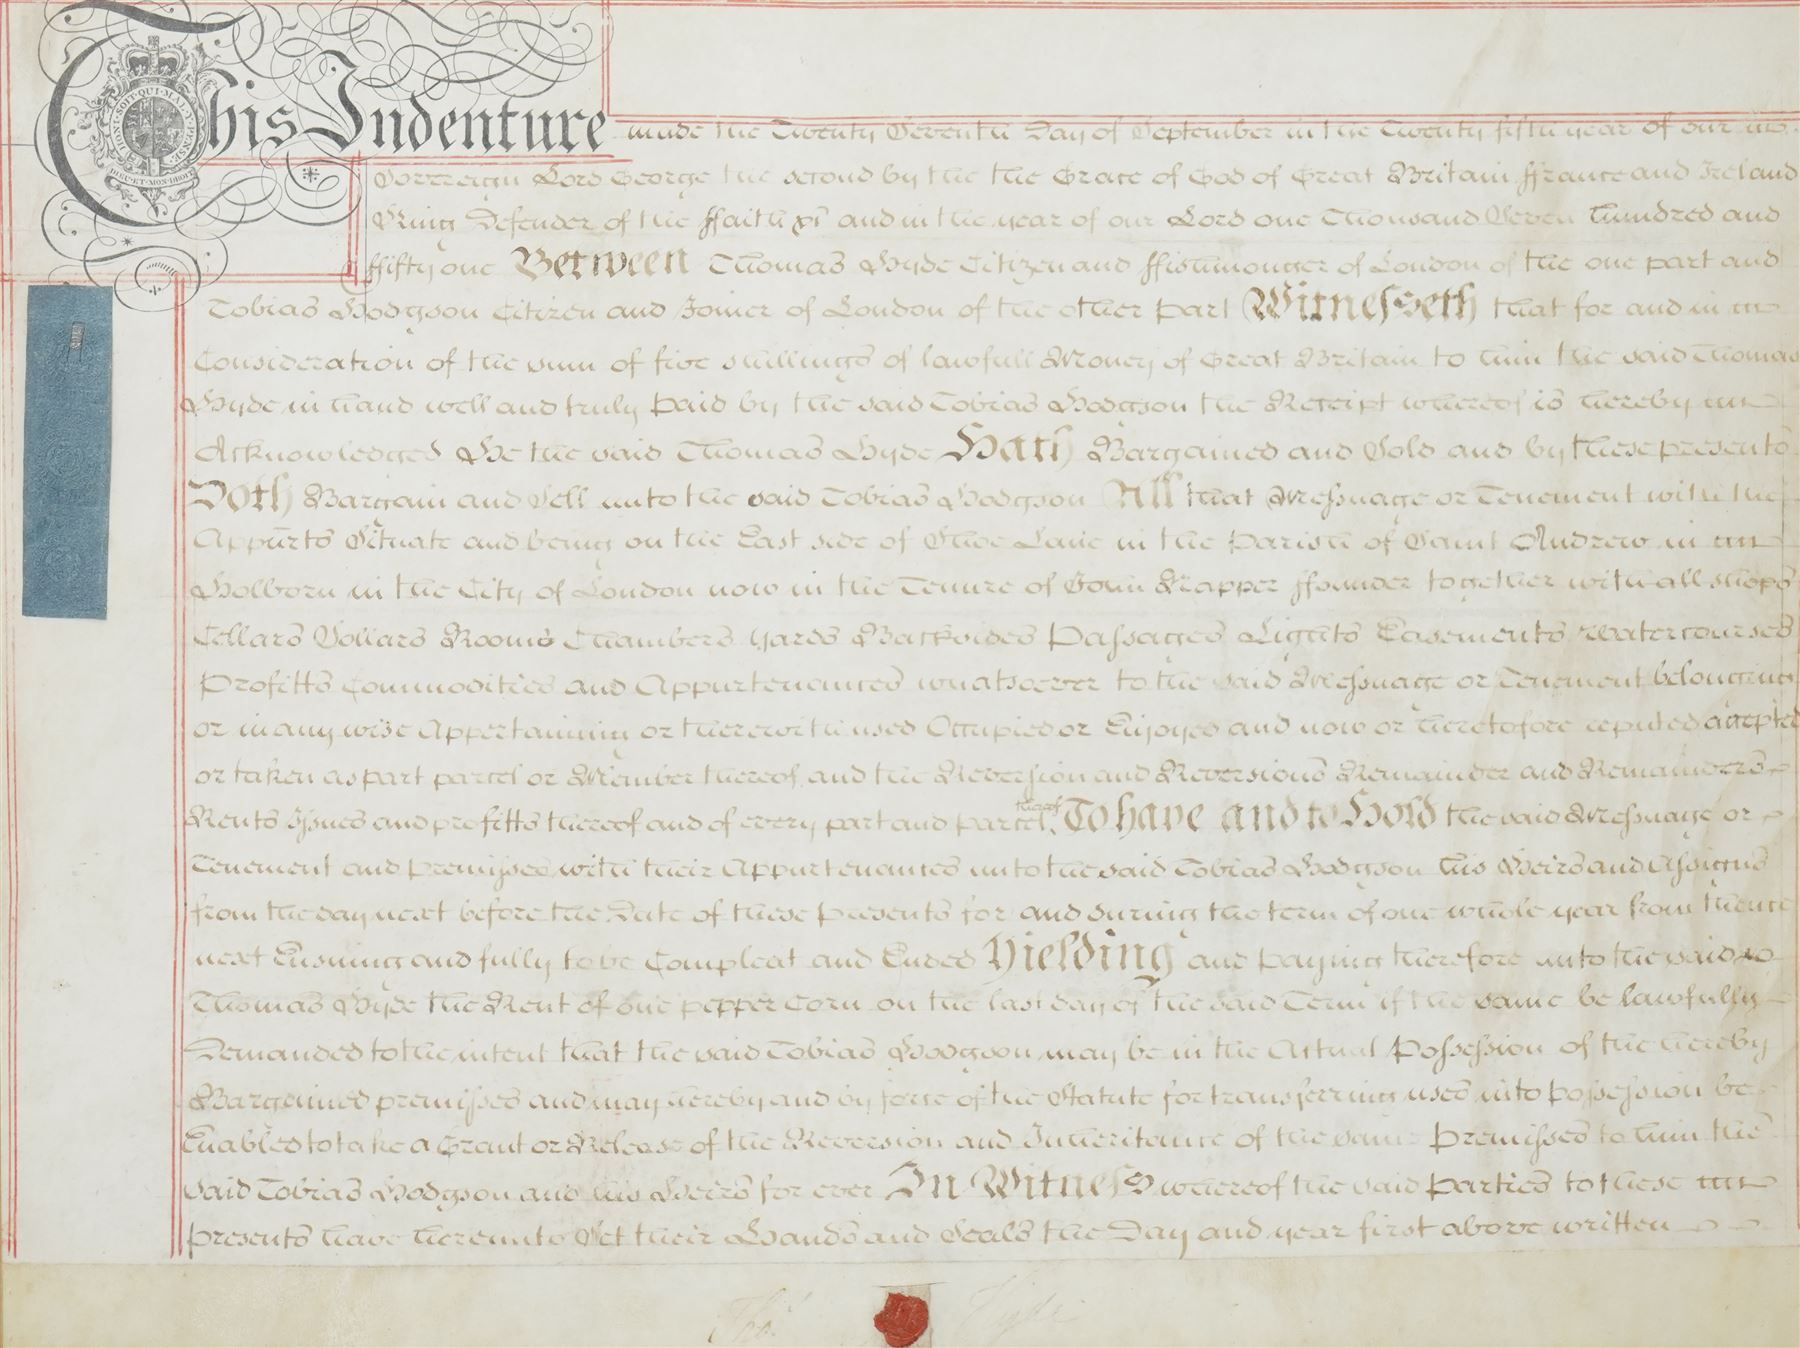 This Indenture made the Twenty Seventh Day of September in the Twenty fifth year of our
HONI·SOIT·QUI·MAL·Y·PENSE
DIEU·ET·MON·DROIT
Sovereign Lord George the second by the the Grace of God of Great Britain ffrance and Ireland
King Defender of the ffaith &c and in the year of our Lord one Thousand Seven hundred and
ffifty one Between Thomas Hyde Citizen and ffishmonger of London of the one part and
Tobias Hodgson Citizen and Joiner of London of the other part Witnesseth that for and in
Consideration of the sum of five shillings of lawfull Money of Great Britain to him the said Thomas
Hyde in hand well and truly paid by the said Tobias Hodgson the Receipt whereof is hereby
Acknowledged He the said Thomas Hyde Hath Bargained and Sold and by these presents
Doth Bargain and Sell unto the said Tobias Hodgson All that Messuage or Tenement with the
Appurts Situate and being on the East side of Shoe Lane in the Parish of Saint Andrew in
Holborn in the City of London now in the Tenure of John Knapper ffounder together with all shops
Cellars Sollars Rooms Chambers yards Backsides Passages Lights Easements Watercourses
Profitts Commodities and Appurtenances whatsoever to the said Messuage or Tenement belonging
or in any wise Appertaining or therewith used Occupied or Enjoyed and now or heretofore reputed accepted
or taken as part parcel or Member thereof and the Reversion and Reversions Remainder and Remainders
Rents Issues and profitts thereof and of every part and parcel thereof To have and to Hold the said Messuage or
Tenement and premisses with their Appurtenances unto the said Tobias Hodgson his Heirs and Assigns
from the day next before the Date of these presents for and during the term of one whole year from thence
next Ensuing and fully to be Compleat and Ended Yielding and Paying therefore unto the said
Thomas Hyde the Rent of one pepper Corn on the last day of the said Term if the same be lawfully
Demanded to the intent that the said Tobias Hodgson may be in the Actual Possession of the hereby
Bargained premisses and may hereby and by force of the Statute for transferring uses into possession be
Enabled to take a Grant or Release of the Reversion and Inheritance of the same Premisses to him the
said Tobias Hodgson and his Heirs for ever In Witness whereof the said Parties to these
presents have hereunto Set their Hands and Seals the Day and year first above written
Thos. Hyde